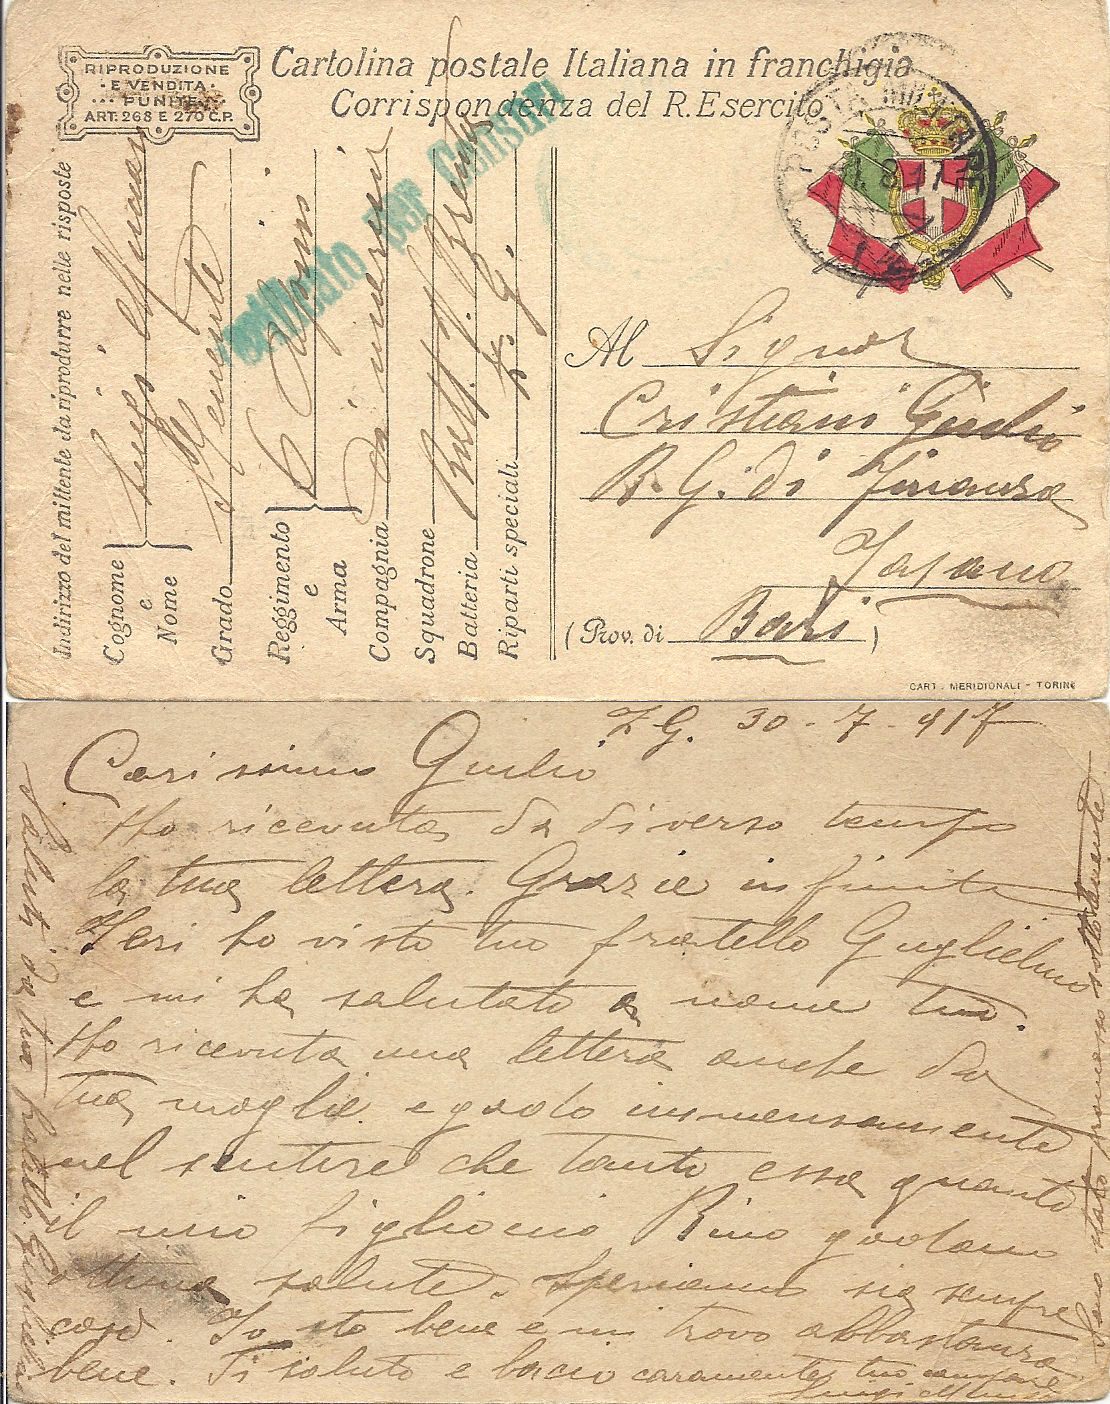 RIPRODUZIONE
E VENDITA
PUNITE
ART. 268 E 270 C.P.
Cartolina postale Italiana in franchigia
Corrispondenza del R. Esercito
POSTA MILITARE
Verificato per Censura
Indirizzo del mittente da riprodurre nelle risposte
Cognome e Nome Luigi
Grado Tenente
Reggimento e Arma 6 Alpini
Compagnia
Squadrone
Batteria Batt.
Riparti speciali Z. G.
Al Signor
Cristiani Giulio
R. G. di Finanza
Fasano
(Prov. di Bari)
CART. MERIDIONALI - TORINO
Z G. 30 - 7 - 917
Carissimo Giulio
Ho ricevuta da diverso tempo
la tua lettera. Grazie infinite
Ieri ho visto tuo fratello Guglielmo
e mi ha salutato a nome tuo.
Ho ricevuta una lettera anche da
tua moglie e godo immensamente
nel sentire che tanto essa quanto
il mio figliocio Rino godano
ottima salute. Speriamo sia sempre
così. Io sto bene e mi trovo abbastanza
bene. Ti saluto e bacio caramente tuo compare
Luigi
Saluti da tuo fratello Guglielmo
Sono stato promosso sottotenente